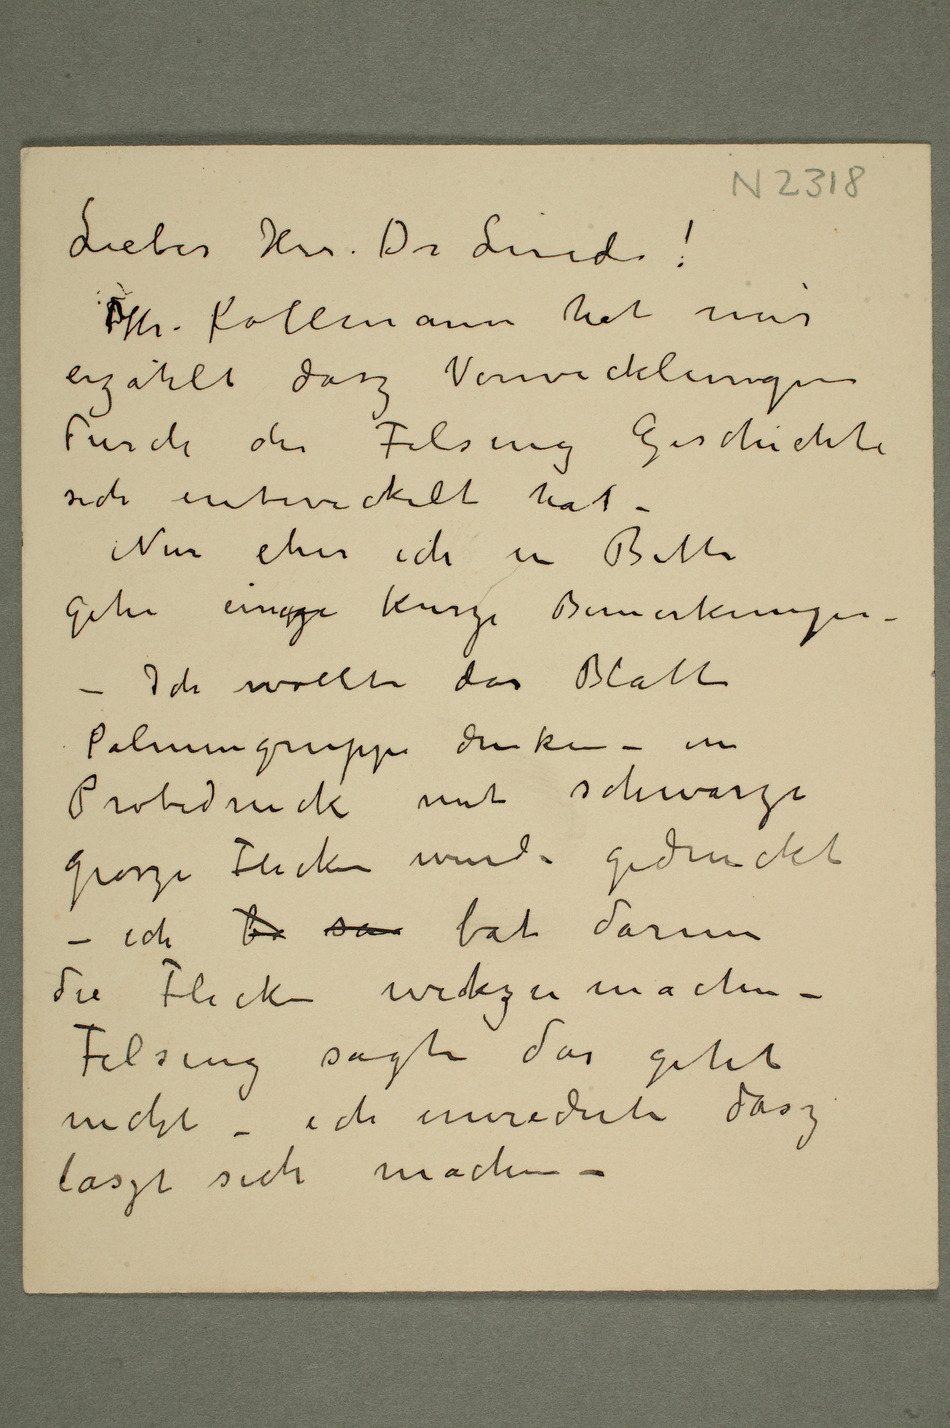 N 2318
Lieber Herr. Dr Linde!
Hr. Kollmann hat mir
erzählt dasz Verwicklungen
durch die Felsing Geschichte
sich entwickelt hat –
Nur eher ich in Bette
gehe einige kurze Bemerkungen –
– Ich wollte das Blatt
Palmengruppe druken – ein
Probedruck mit schwarze
grosze Flicken wurde gedruckt
– ich bat darum
die Flicken wekzumachen –
Felsing sagte das geht
nicht – ich einredete dasz
laszt sich machen –